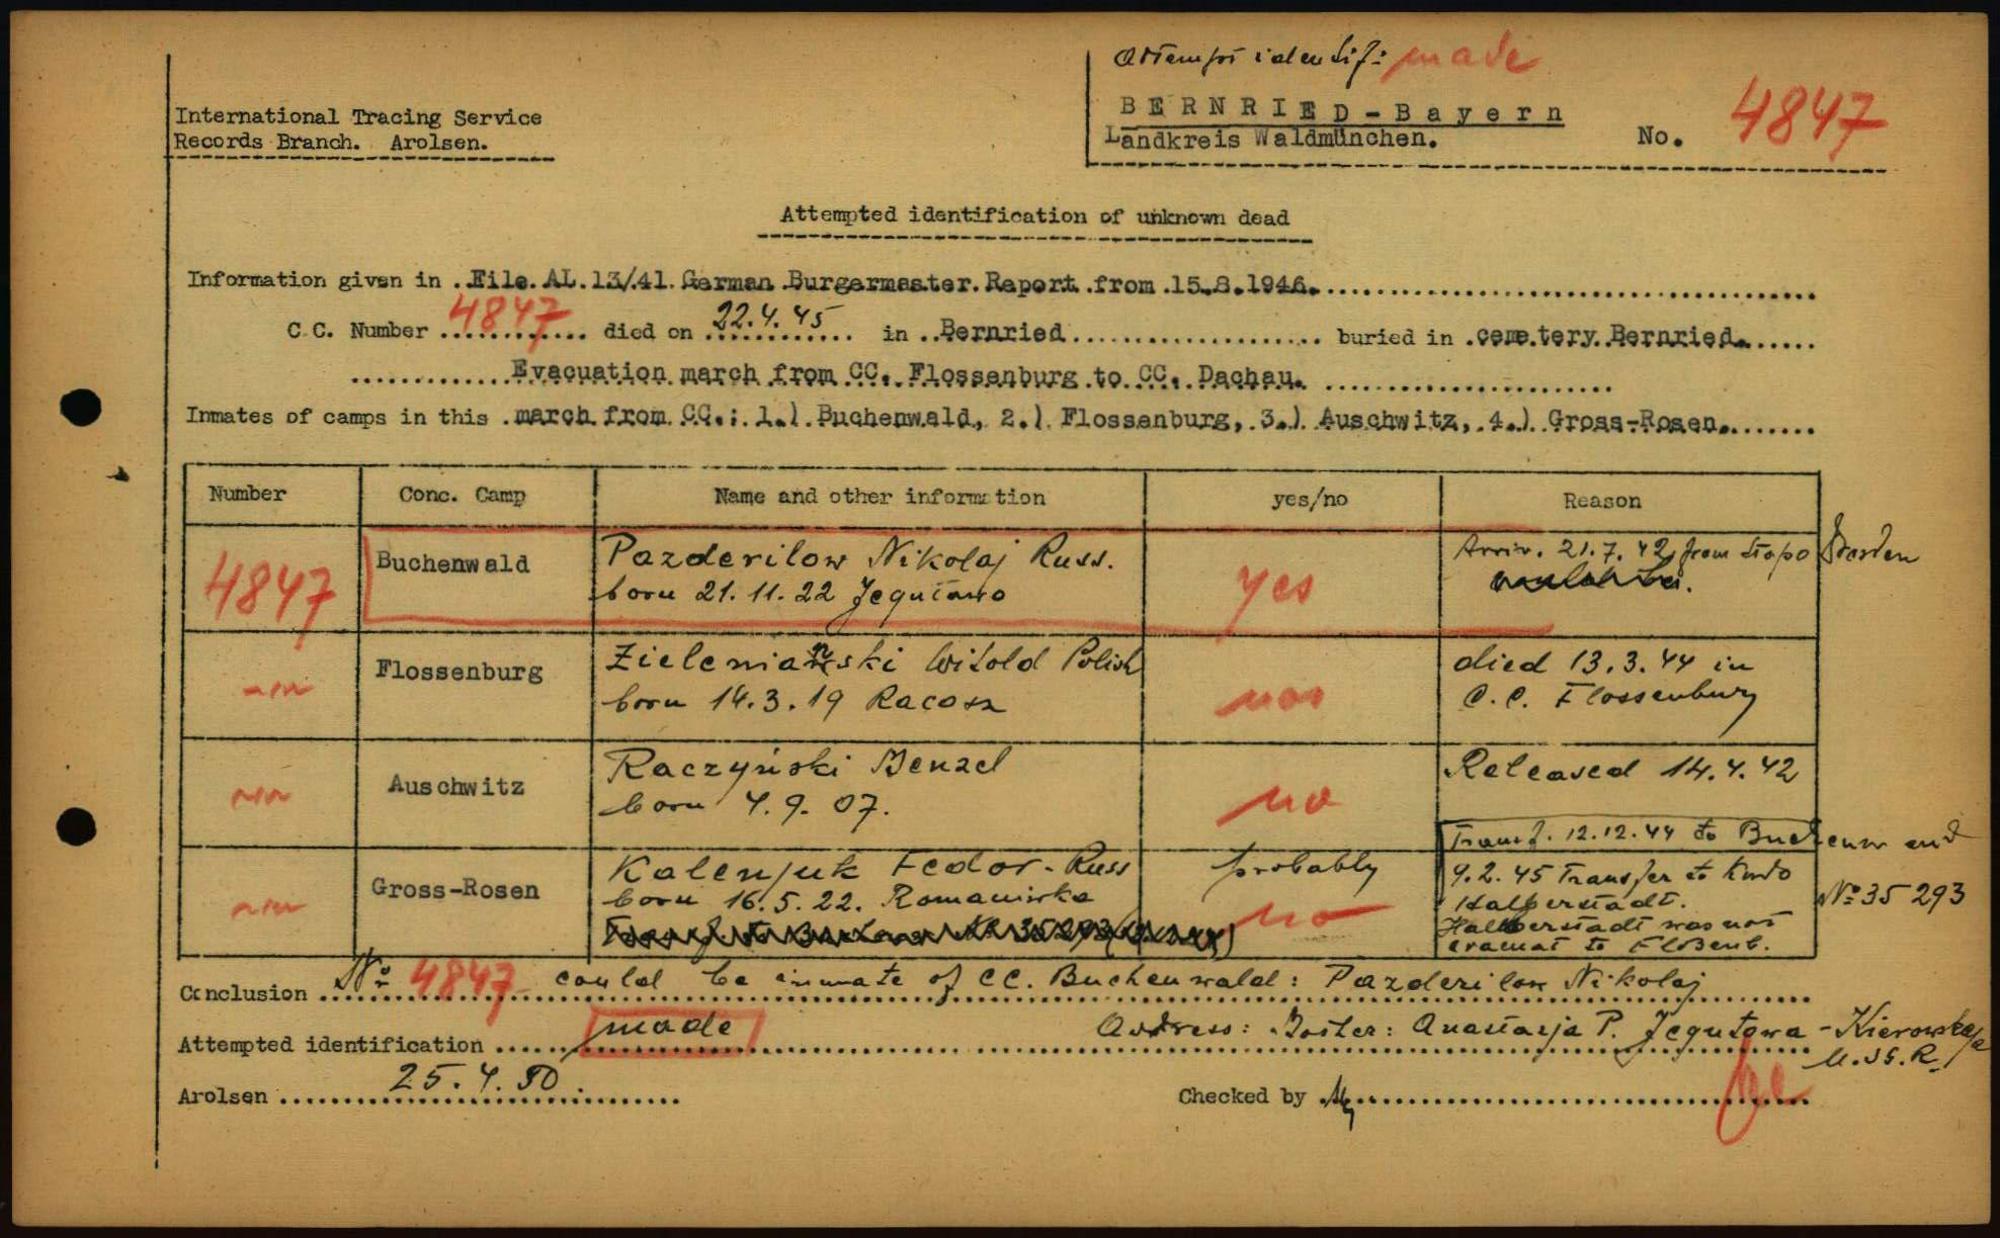 Attempt identif: made
International Tracing Service
Records Branch. Arolsen.
BERNRIED-Bayern
Landkreis Waldmünchen. No. 4847
Attempted identification of unknown dead
Information given in .File.AL.13/.41.German.Burgermaster.Report.from.15.8.1946.
C.C. Number 4847 died on 22.4.45 in Bernried buried in cemetery Bernried.
Evacuation march from CC. Flossenburg to CC. Dachau.
Inmates of camps in this march from CC.: 1.) Buchenwald, 2.) Flossenburg, 3.) Auschwitz, 4.) Gross-Rosen.
Number Conc. Camp Name and other information yes/no Reason
4847 Buchenwald Pazderilow Nikolaj Russ. yes Arriv. 21.7.42 from Stapo Dresden
born 21.11.22 Jegutowo
-"- Flossenburg Zielenianski Witold Polish no died 13.3.44 in
born 14.3.19 Racosz C.C. Flossenburg
-"- Auschwitz Raczyński Benzel no Released 14.4.42
born 4.9.07.
Transf. 12.12.44 to Buchenw and
-"- Gross-Rosen Kalenjuk Fedor-Russ probably 9.2.45 Transfer to Kmdo
born 16.5.22. Romaniwka no Halberstadt. No 35 293
Halberstadt was not
evacuat to Floßenb.
Conclusion No 4847 could be inmate of CC. Buchenwald: Pazderilow Nikolaj
Attempted identification made Address: Anastasja P. Jegutowa - Kierowska
U.SS.R.
Arolsen 25.4.50. Checked by